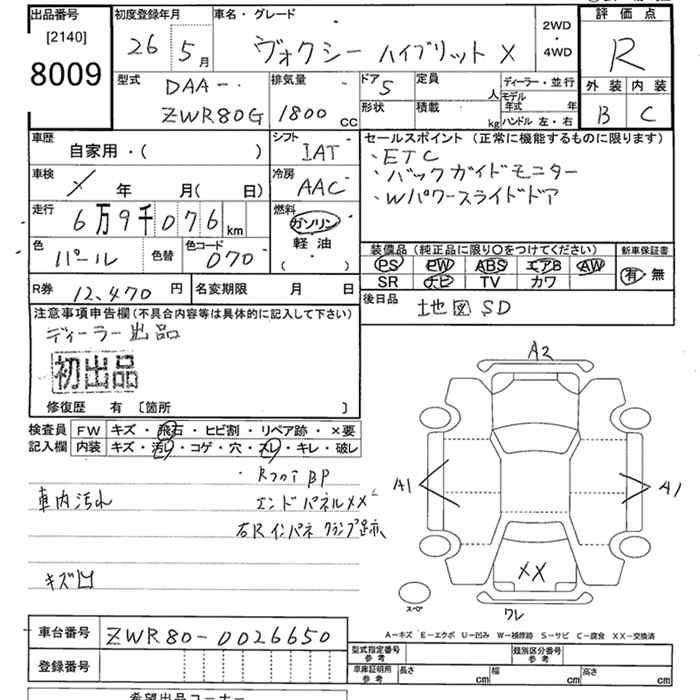 出品番号 初度登録年月 車名・グレード 2WD・4WD 評価点
[2140]
8009 26年 5月 ヴォクシー ハイブリット X R
型式 DAA- 排気量 ドア 5 定員 人 ディーラー・並行 外装 内装
ZWR80G 1800 CC 形状 積載 kg モデル年式 年 ハンドル 左・右 B C
車歴 自家用・( ) シフト IAT セールスポイント(正常に機能するものに限ります)
・ETC
車検 年 月( 日) 冷房 AAC ・バックガイドモニター
・Wパワースライドドア
走行 6万9千076km 燃料 ガソリン
軽油
( ・ )
色 パール 色替 色コード 070
装備品(純正品に限り○をつけてください) 新車保証書
PS PW ABS エアB AW 有・無
SR ナビ TV カワ
R券 12,470円 名変期限 月 日 後日品 地図SD
注意事項申告欄(不具合内容等は具体的に記入して下さい)
ディーラー出品
初出品
修復歴 有 〔箇所 〕
検査員 FW キズ・飛石・ヒビ割・リペア跡・×要
記入欄 内装 キズ・汚れ・コゲ・穴・スレ・キレ・破レ
・RフカイBP
車内汚れ エンドパネルXX
右Rインパネ クランプ跡
キズ凹
A2
A1 A1
XX
スペア
ワレ
A-キズ E-エクボ U-凹み W-補修跡 S-サビ C-腐食 XX-交換済
車台番号 ZWR80-0026650 型式指定番号 参考 類別区分番号 参考
登録番号 車庫証明用 参考 長さ cm 幅 cm 高さ cm
希望出品コーナー